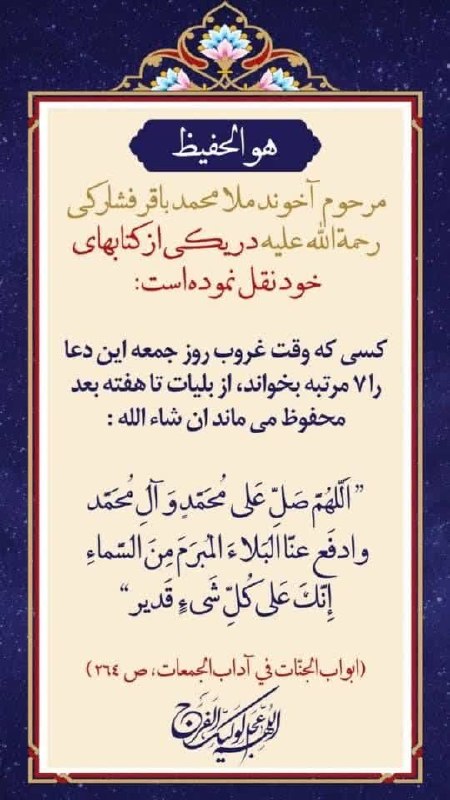 هو الحفیظ
مرحوم آخوند ملا محمد باقر فشارکی
رحمة الله علیه در یکی از کتابهای
خود نقل نموده است:
کسی که وقت غروب روز جمعه این دعا
را ۷ مرتبه بخواند، از بلیات تا هفته بعد
محفوظ می ماند ان شاء الله :
”اَللّهُمَّ صَلِّ عَلی مُحَمَّدٍ وَ آلِ مُحَمَّد
وادفَع عنّا البَلاءَ المُبرَمَ مِنَ السَّماءِ
إِنَّكَ عَلی كُلِّ شَیءٍ قَدیر“
(ابواب الجنّات في آداب الجمعات، ص ٢٦٤)
اللهم عجل لولیک الفرج